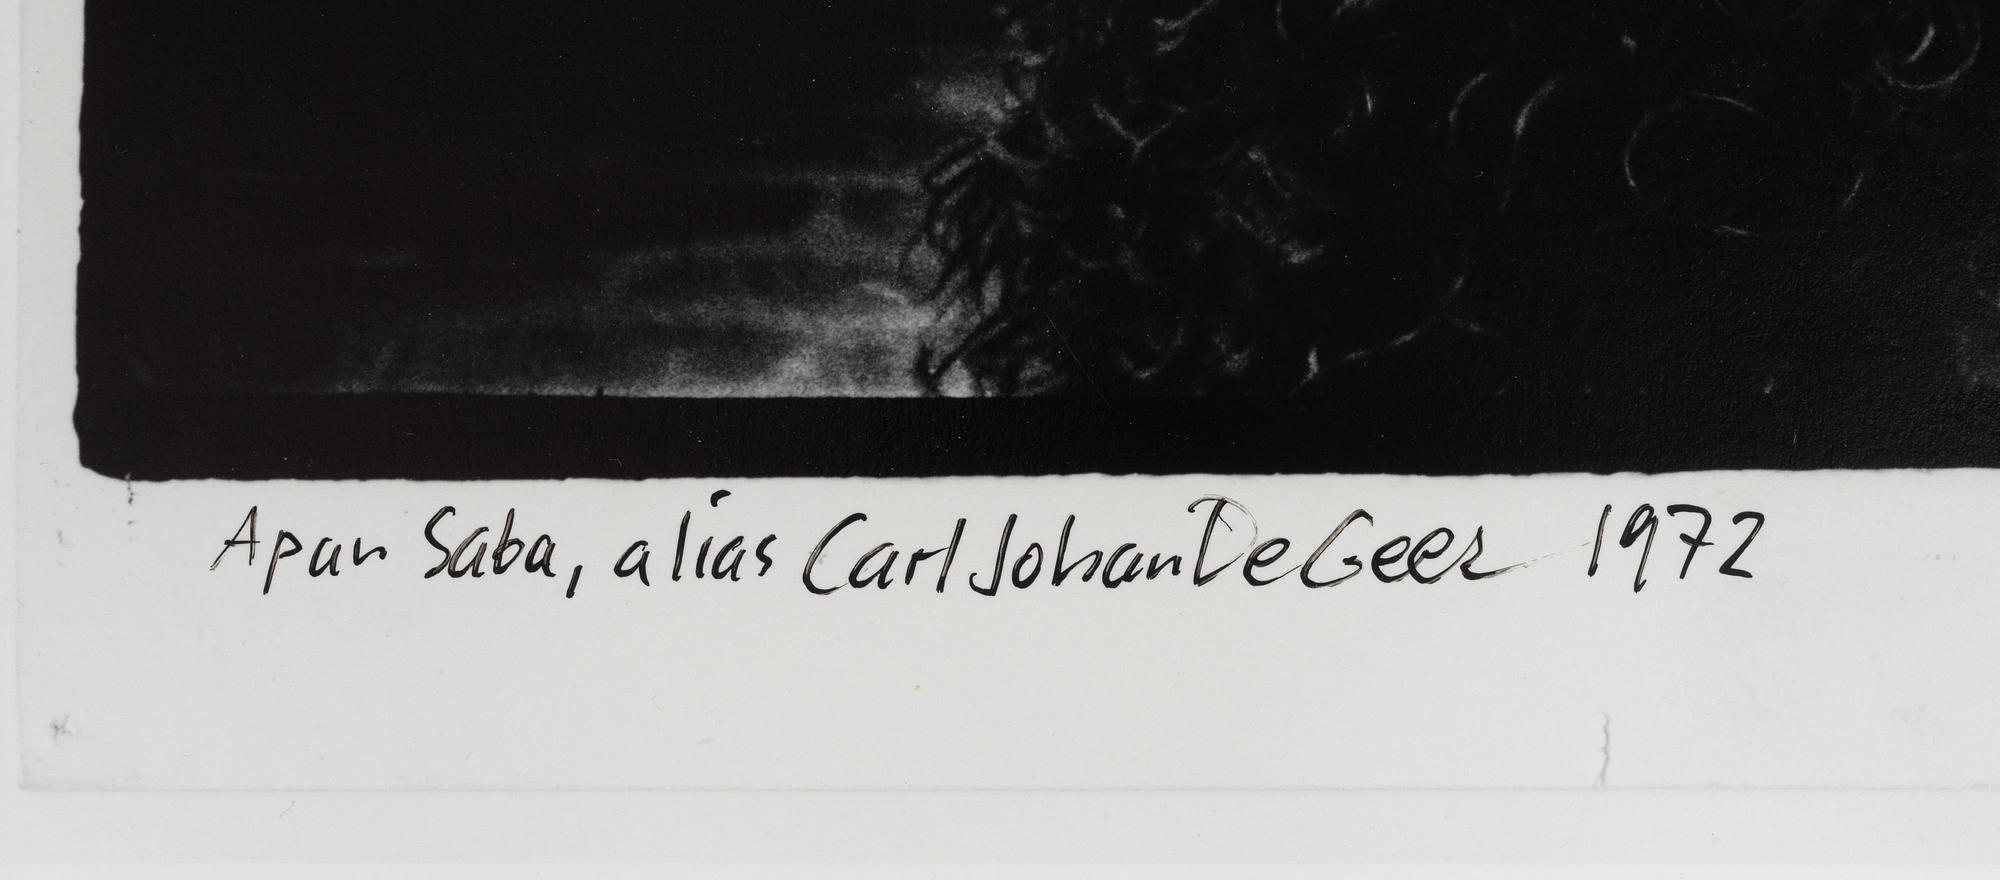 Apan Saba, alias Carl Johan De Geer 1972